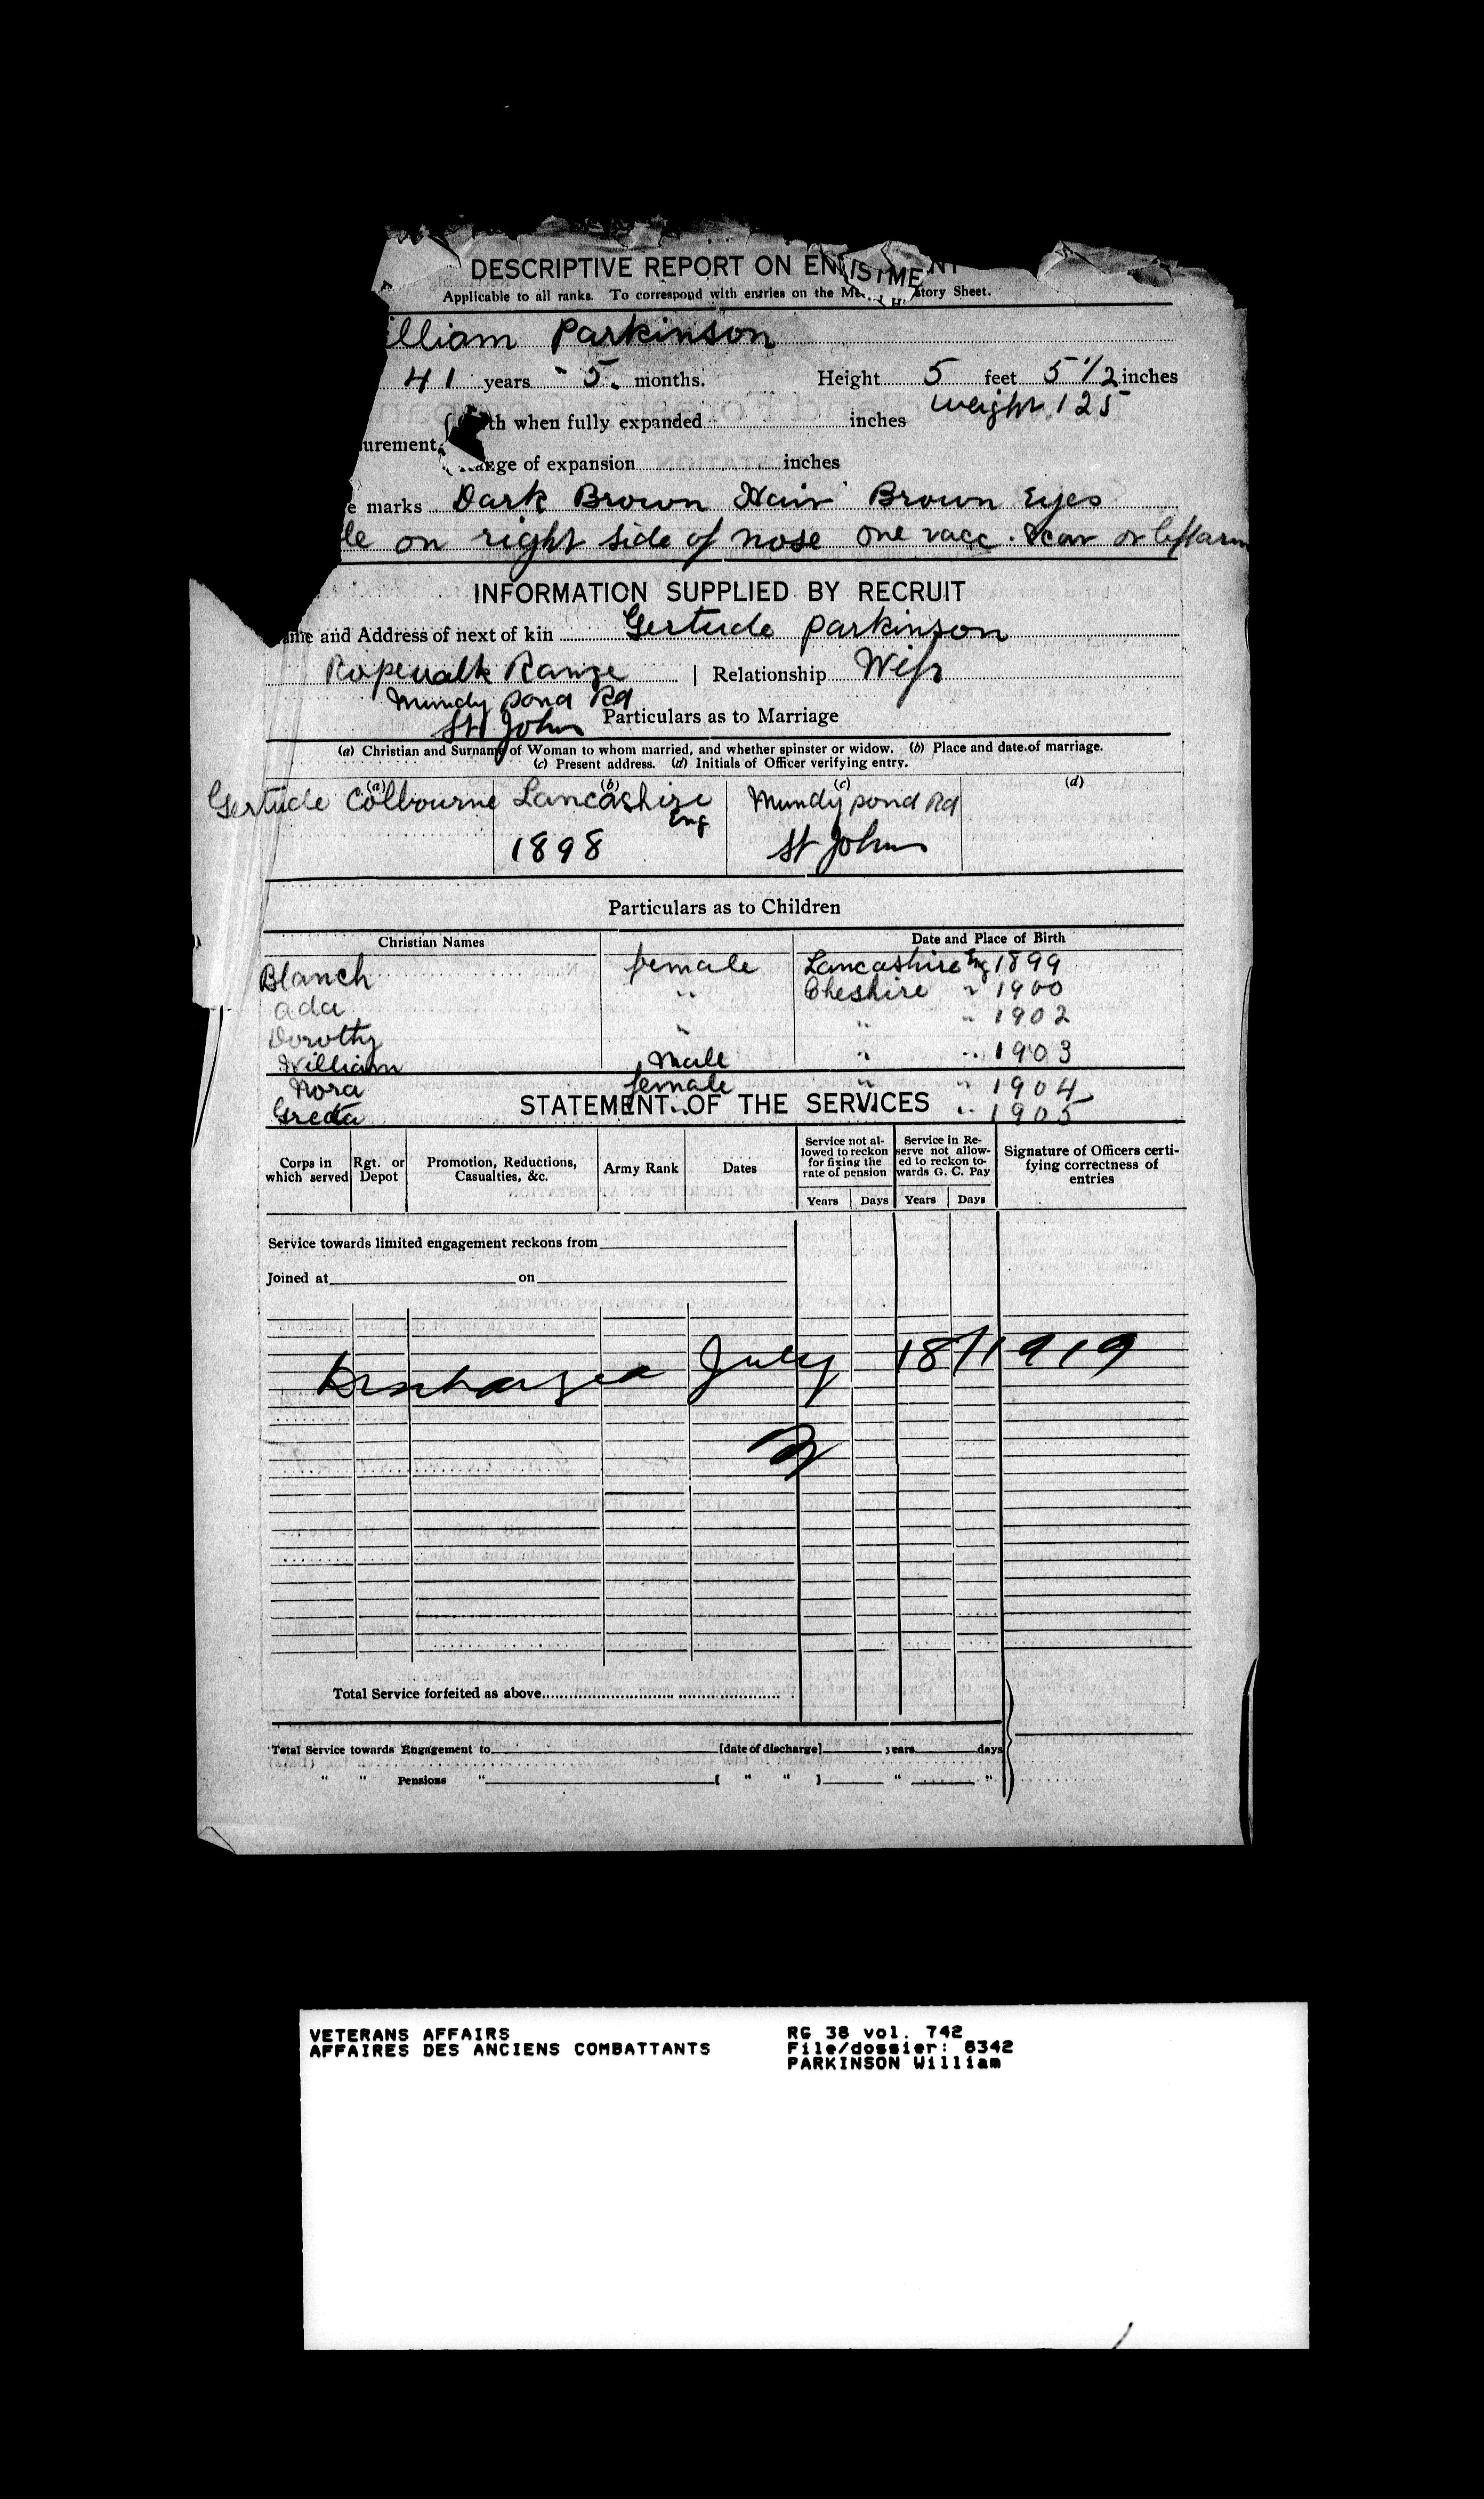 DESCRIPTIVE REPORT ON ENLISTMENT
Applicable to all ranks. To correspond with entries on the Me... H story Sheet.
illiam Parkinson
41 years 5 months. Height 5 feet 5 1/2 inches
weight 125
th when fully expanded inches
urement
ange of expansion inches
e marks Dark Brown Hair Brown Eyes
le on right side of nose one vacc. Scar on left arm
INFORMATION SUPPLIED BY RECRUIT
ame and Address of next of kin Gertude Parkinson
Ropewalk Range | Relationship Wife
Mundy pond Rd
St John Particulars as to Marriage
(a) Christian and Surname of Woman to whom married, and whether spinster or widow. (b) Place and date of marriage.
(c) Present address. (d) Initials of Officer verifying entry.
(a) (b) (c) (d)
Gertude Colbourne Lancashire Mundy pond Rd
Eng
1898 St Johns
Particulars as to Children
Christian Names Date and Place of Birth
Blanch female Lancashire Eng 1899
Ada " Cheshire " 1900
Dorothy " " " 1902
William Male " " 1903
Nora female " " 1904
Greta " " " 1905
STATEMENT OF THE SERVICES
Corps in which served Rgt. or Depot Promotion, Reductions, Casualties, &c. Army Rank Dates Service not allowed to reckon for fixing the rate of pension Service in Reserve not allowed to reckon towards G. C. Pay Signature of Officers certifying correctness of entries
Years Days Years Days
Service towards limited engagement reckons from
Joined at on
Discharged July 18/1919
Total Service forfeited as above
Total Service towards Engagement to [date of discharge] years days
" " Pensions " [ " " ] " "
VETERANS AFFAIRS RG 38 vol. 742
AFFAIRES DES ANCIENS COMBATTANTS File/dossier: 8342
PARKINSON William